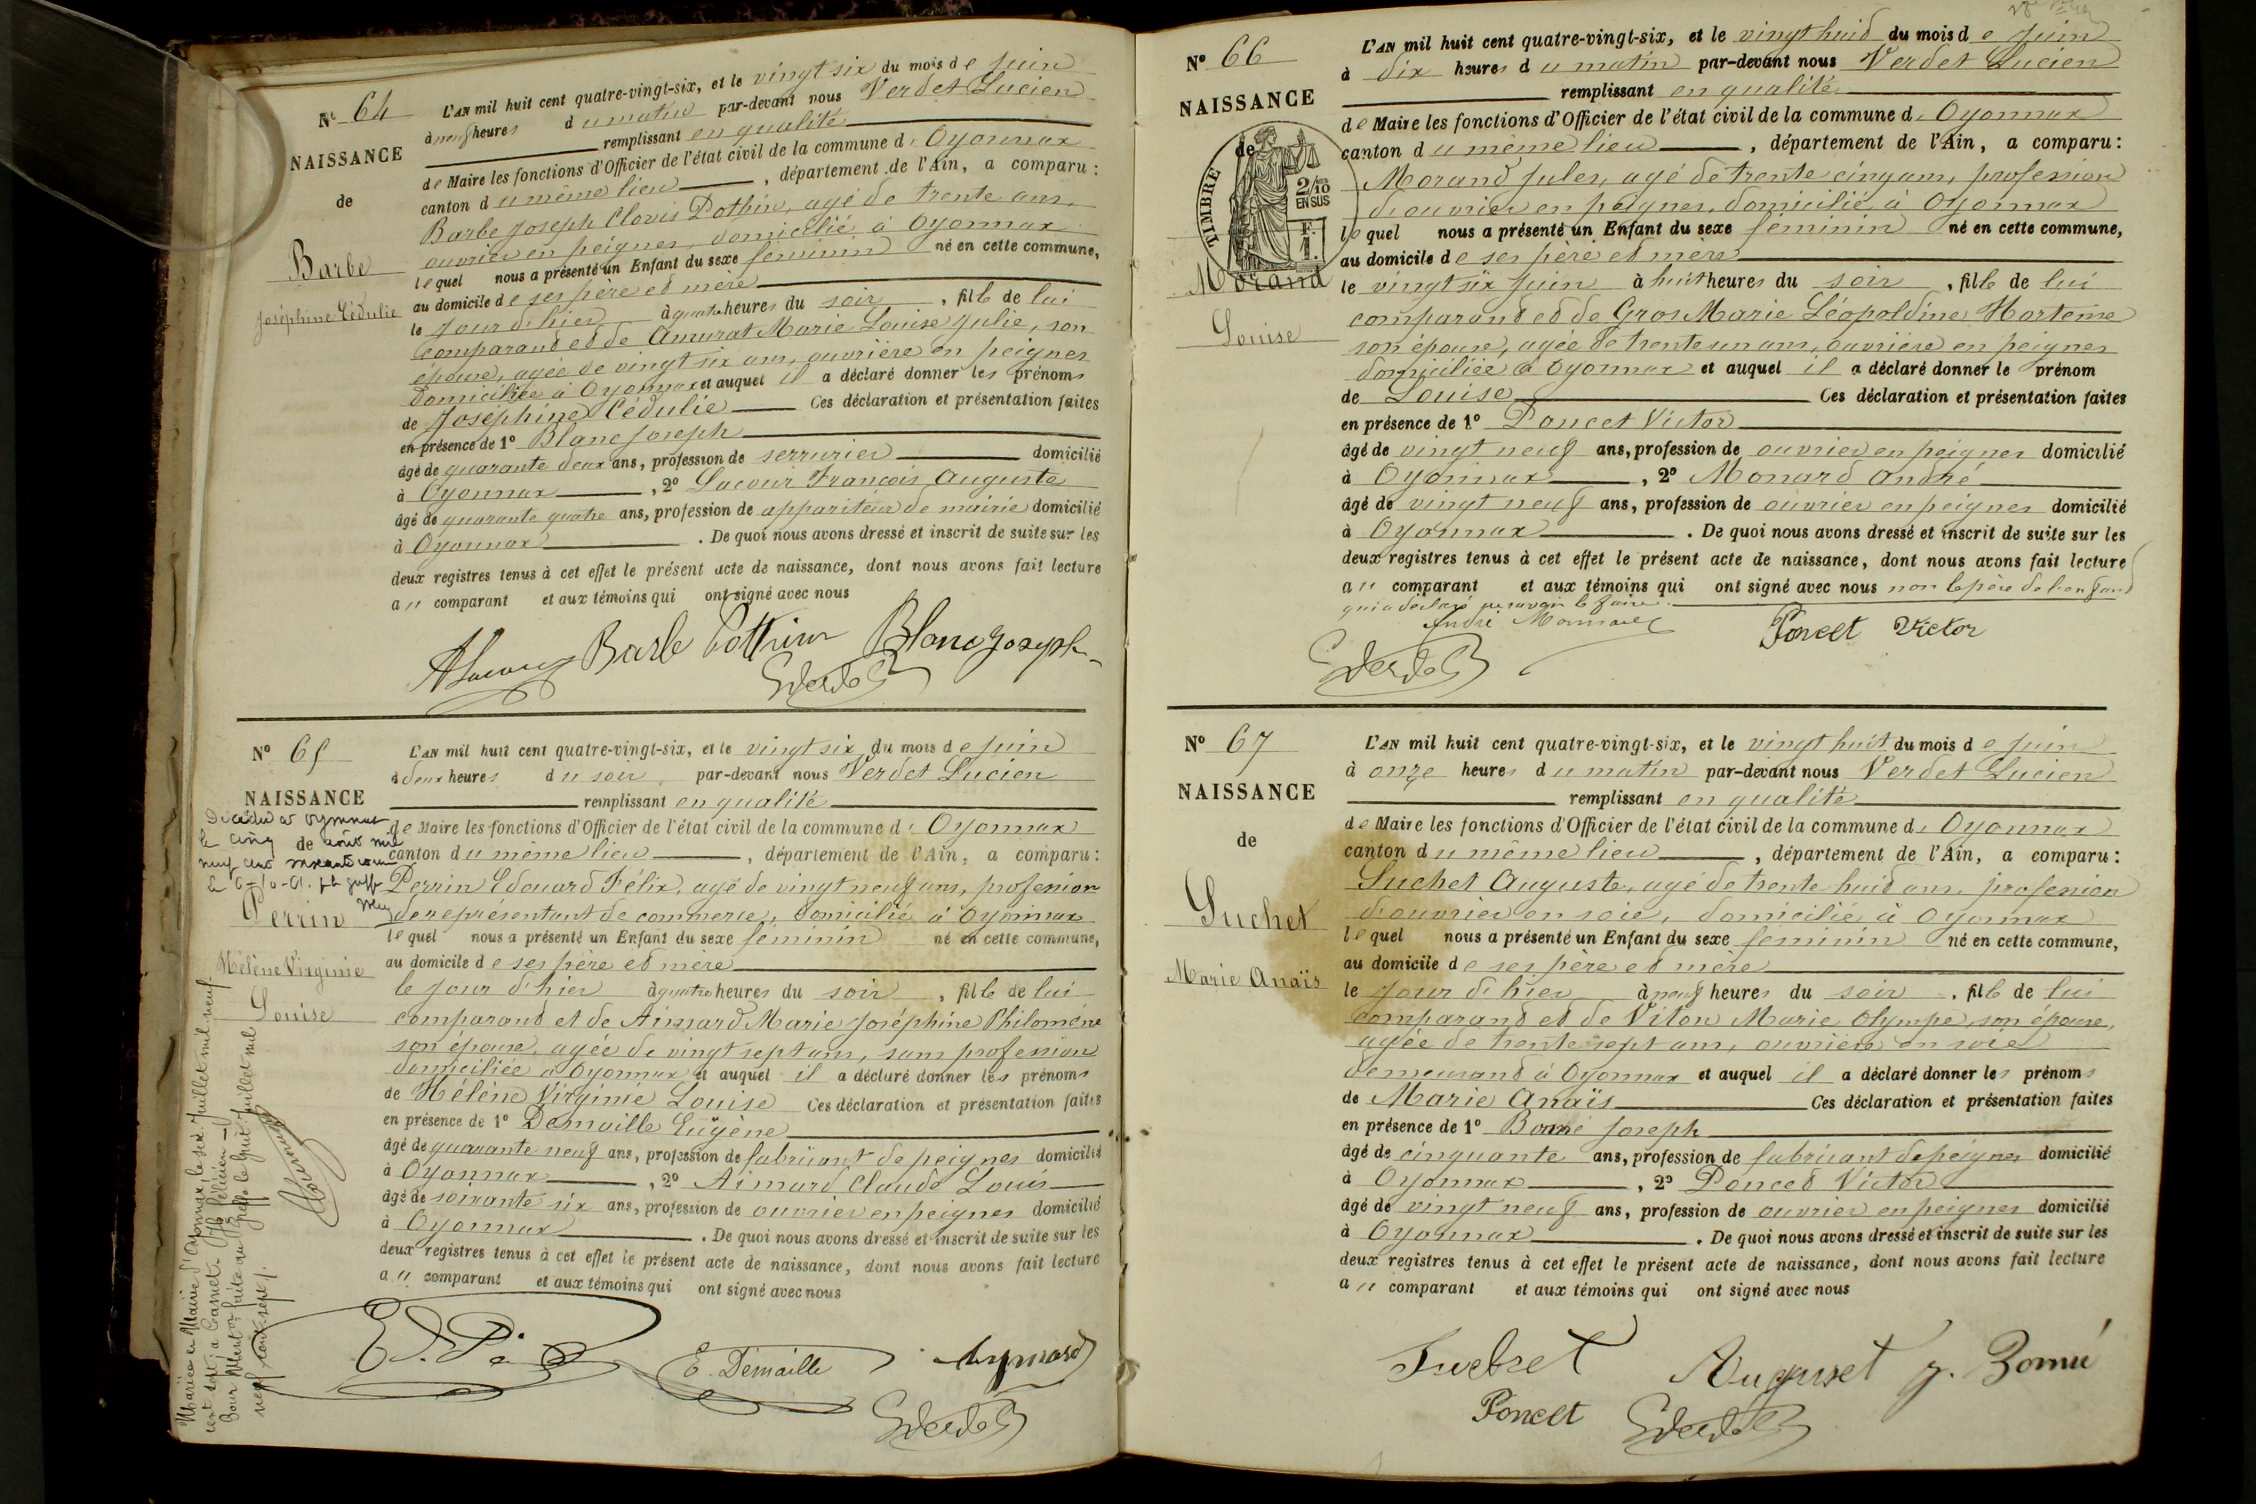 Nº 64
NAISSANCE
de
Barbe
Joséphine Cédulie
L'AN mil huit cent quatre-vingt-six, et le vingt six du mois de Juin
à neuf heures du matin par-devant nous Verdet Lucien
remplissant en qualité
de Maire les fonctions d'Officier de l'état civil de la commune d' Oyonnax
canton du même lieu, département de l'Ain, a comparu :
Barbe Joseph Clovis Pothin, agé de trente ans,
ouvrier en peignes, domicilié à Oyonnax
lequel nous a présenté un Enfant du sexe féminin né en cette commune,
au domicile de ses père et mère
le jour d'hier à quatre heures du soir, fille de lui
comparant et de Amurat Marie Louise Julie, son
épouse, agée de vingt six ans, ouvrière en peignes
domiciliée à Oyonnax et auquel il a déclaré donner les prénoms
de Joséphine Cédulie Ces déclaration et présentation faites
en présence de 1º Blanc Joseph
âgé de quarante deux ans, profession de serrurier domicilié
à Oyonnax, 2º Lacour François Auguste
âgé de quarante quatre ans, profession de appariteur de mairie domicilié
à Oyonnax. De quoi nous avons dressé et inscrit de suite sur les
deux registres tenus à cet effet le présent acte de naissance, dont nous avons fait lecture
au comparant et aux témoins qui ont signé avec nous
ALacour Barbe Pothin Blanc Joseph
LVerdet
Nº 65
NAISSANCE
de
Décédée à Oyonnax
le cinq août mil
neuf cent soixante et un
Le 6-10-61. ple greff
Perrin
Hélène Virginie
Louise
Mariée en Mairie d'Oyonnax, le six Juillet mil neuf
cent sept, à Carret Jph Félicien
Pour Mention faite au greffe le huit Juillet mil
neuf cent sept
L'AN mil huit cent quatre-vingt-six, et le vingt six du mois de Juin
à deux heures du soir par-devant nous Verdet Lucien
remplissant en qualité
de Maire les fonctions d'Officier de l'état civil de la commune d' Oyonnax
canton du même lieu, département de l'Ain, a comparu :
Perrin Edouard Félix, agé de vingt neuf ans, profession
de représentant de commerce, domicilié à Oyonnax
lequel nous a présenté un Enfant du sexe féminin né en cette commune,
au domicile de ses père et mère
le jour d'hier à quatre heures du soir, fille de lui
comparant et de Aimard Marie Joséphine Philomène
son épouse, agée de vingt sept ans, sans profession
domiciliée à Oyonnax et auquel il a déclaré donner les prénoms
de Hélène Virginie Louise Ces déclaration et présentation faites
en présence de 1º Demaille Eugène
âgé de quarante neuf ans, profession de fabricant de peignes domicilié
à Oyonnax, 2º Aimard Claude Louis
âgé de soixante six ans, profession de ouvrier en peignes domicilié
à Oyonnax. De quoi nous avons dressé et inscrit de suite sur les
deux registres tenus à cet effet le présent acte de naissance, dont nous avons fait lecture
au comparant et aux témoins qui ont signé avec nous
E. Demaille Aymard
LVerdet
Nº 66
NAISSANCE
de
TIMBRE
2/10
EN SUS
F.
1.
Morand
Louise
L'AN mil huit cent quatre-vingt-six, et le vingt huit du mois de Juin
à dix heures du matin par-devant nous Verdet Lucien
remplissant en qualité
de Maire les fonctions d'Officier de l'état civil de la commune d' Oyonnax
canton du même lieu, département de l'Ain, a comparu :
Morand Jules, agé de trente cinq ans, profession
d'ouvrier en peignes, domicilié à Oyonnax
lequel nous a présenté un Enfant du sexe féminin né en cette commune,
au domicile de ses père et mère
le vingt six Juin à huit heures du soir, fille de lui
comparant et de Gros Marie Léopoldine Hortense
son épouse, agée de trente un ans, ouvrière en peignes
domiciliée à Oyonnax et auquel il a déclaré donner le prénom
de Louise Ces déclaration et présentation faites
en présence de 1º Poncet Victor
âgé de vingt neuf ans, profession de ouvrier en peignes domicilié
à Oyonnax, 2º Monard André
âgé de vingt neuf ans, profession de ouvrier en peignes domicilié
à Oyonnax. De quoi nous avons dressé et inscrit de suite sur les
deux registres tenus à cet effet le présent acte de naissance, dont nous avons fait lecture
au comparant et aux témoins qui ont signé avec nous non le père de l'enfant
qui a déclaré ne savoir le faire.
André Monnard Poncet Victor
LVerdet
Nº 67
NAISSANCE
de
Suchet
Marie Anaïs
L'AN mil huit cent quatre-vingt-six, et le vingt huit du mois de Juin
à onze heures du matin par-devant nous Verdet Lucien
remplissant en qualité
de Maire les fonctions d'Officier de l'état civil de la commune d' Oyonnax
canton du même lieu, département de l'Ain, a comparu :
Suchet Auguste, agé de trente huit ans, profession
d'ouvrier en soie, domicilié à Oyonnax
lequel nous a présenté un Enfant du sexe féminin né en cette commune,
au domicile de ses père et mère
le jour d'hier à neuf heures du soir, fille de lui
comparant et de Viton Marie Olympe, son épouse,
agée de trente sept ans, ouvrière en soie
demeurant à Oyonnax et auquel il a déclaré donner les prénoms
de Marie Anaïs Ces déclaration et présentation faites
en présence de 1º Bomé Joseph
âgé de cinquante ans, profession de fabricant de peignes domicilié
à Oyonnax, 2º Poncet Victor
âgé de vingt neuf ans, profession de ouvrier en peignes domicilié
à Oyonnax. De quoi nous avons dressé et inscrit de suite sur les
deux registres tenus à cet effet le présent acte de naissance, dont nous avons fait lecture
au comparant et aux témoins qui ont signé avec nous
Suchet Auguset J. Bomé
Poncet LVerdet